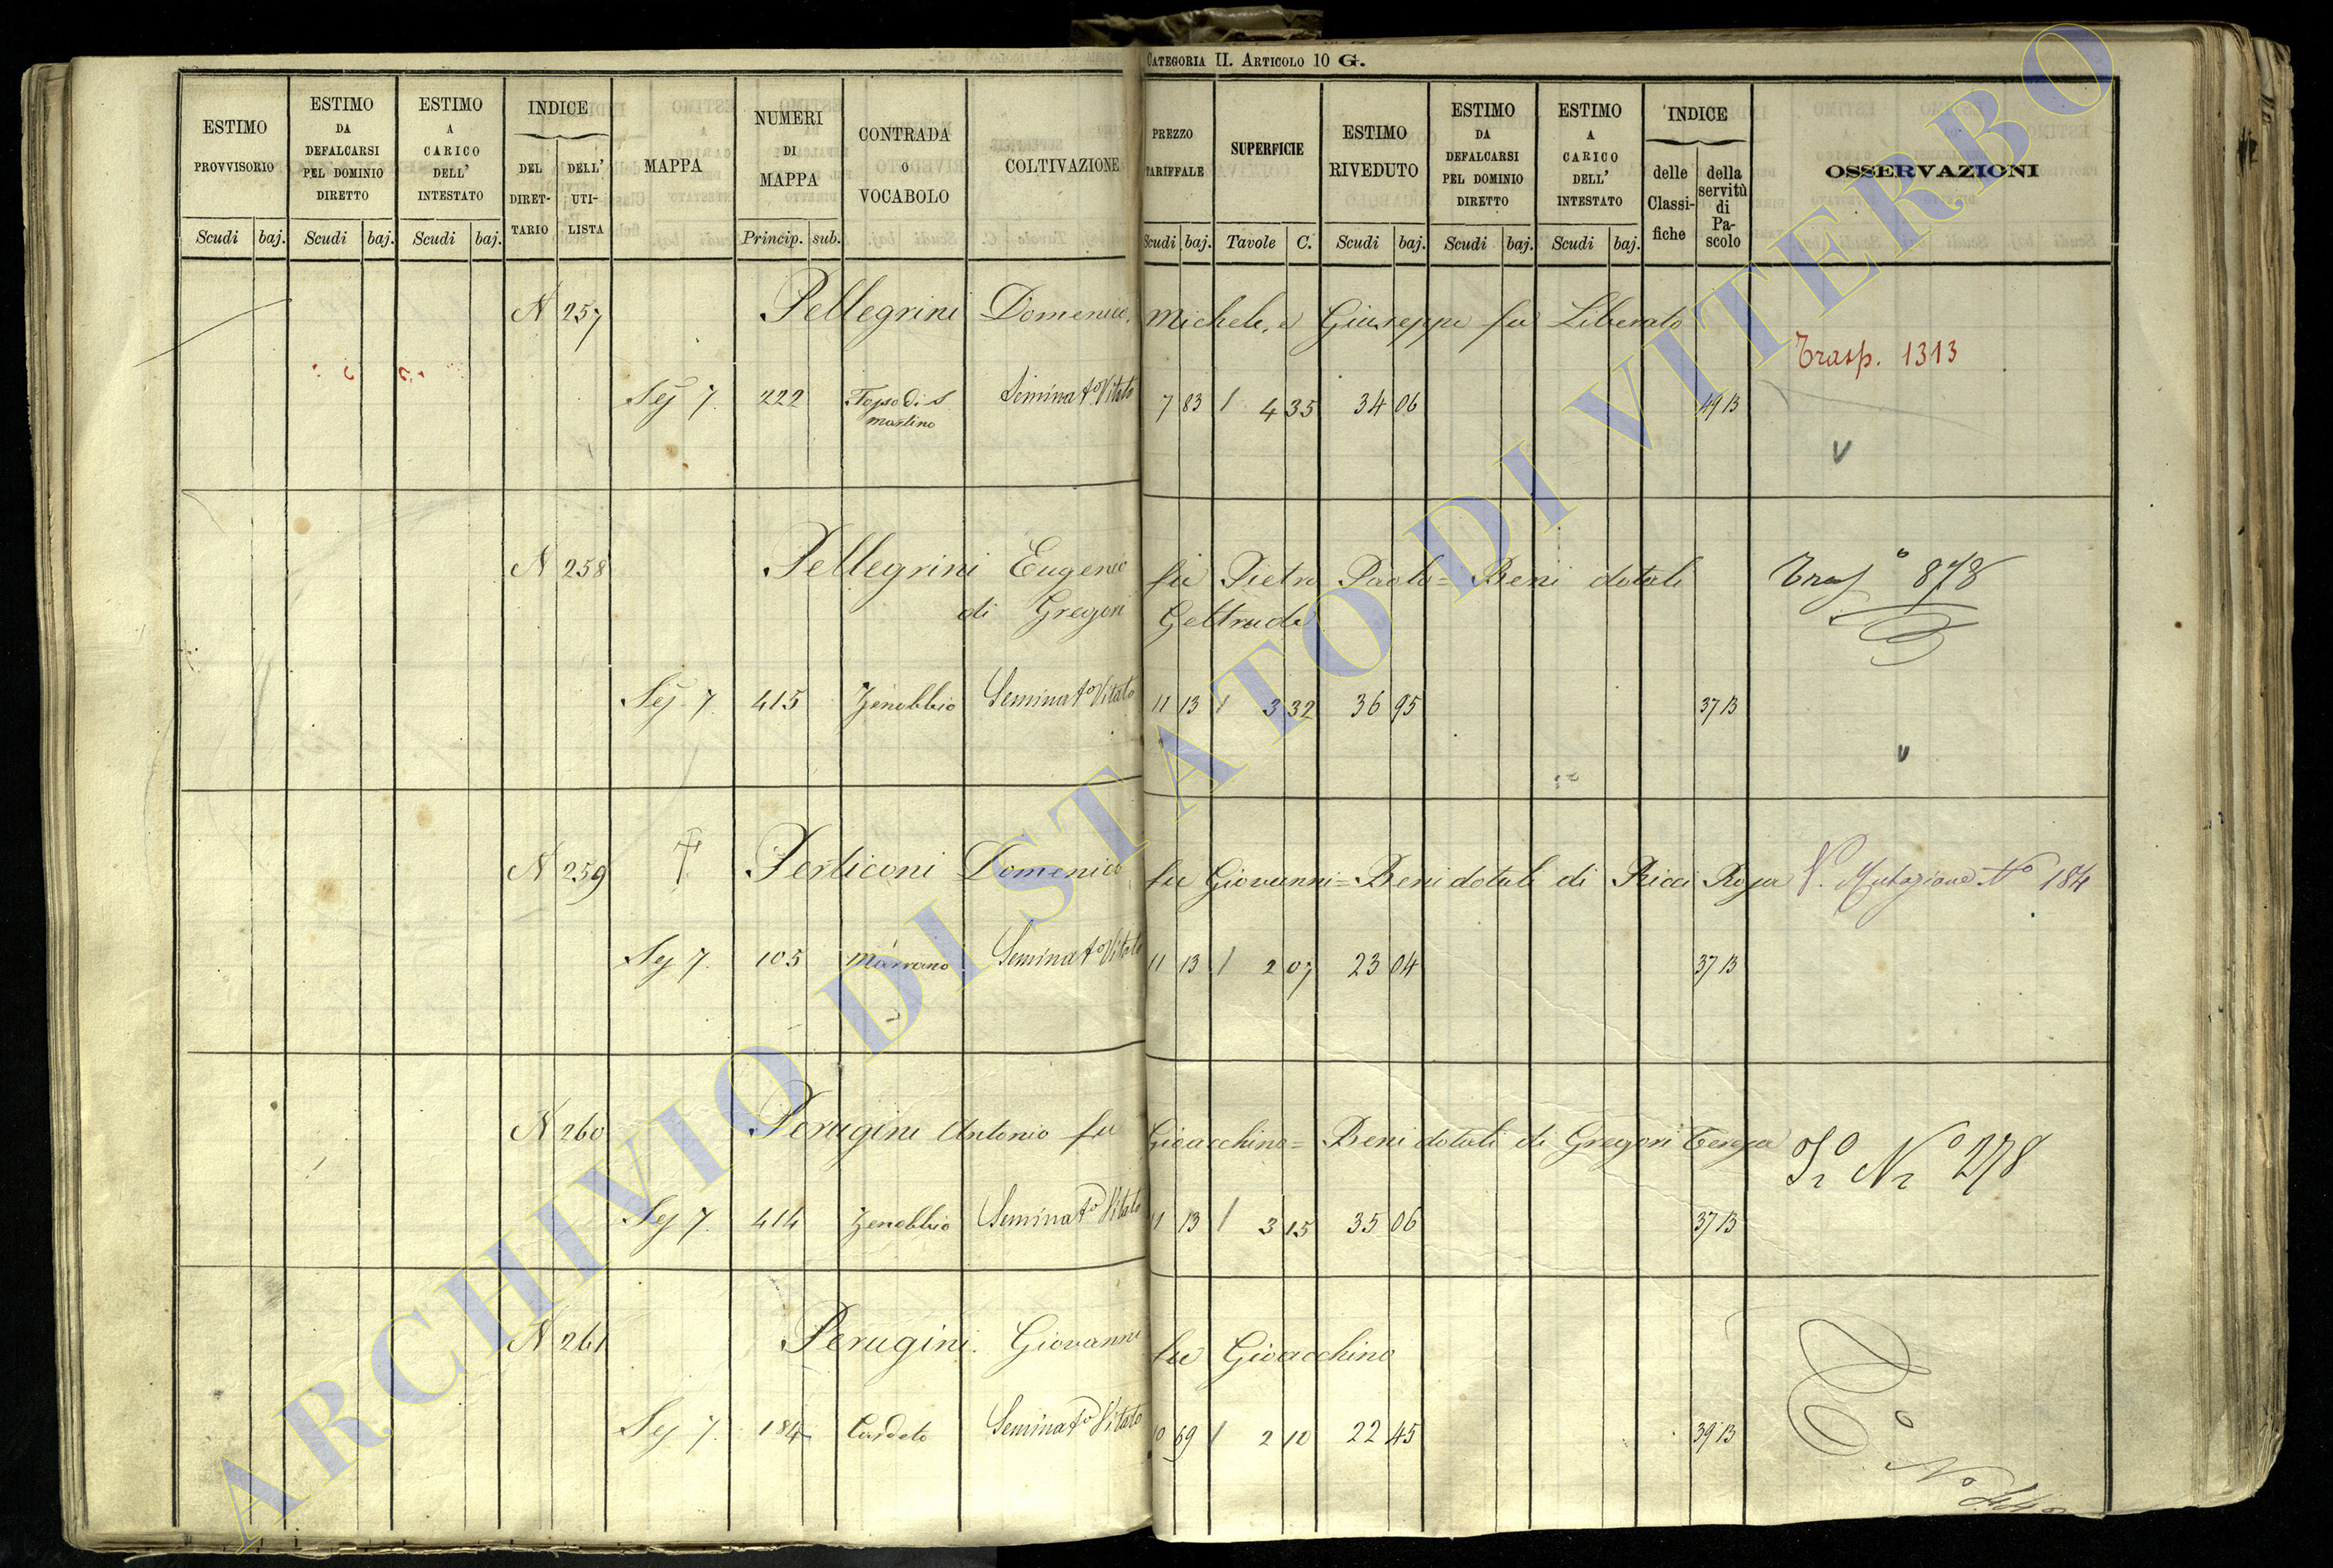 CATEGORIA II. ARTICOLO 10 G.
ESTIMO PROVVISORIO | ESTIMO DA DEFALCARSI PEL DOMINIO DIRETTO | ESTIMO A CARICO DELL' INTESTATO | INDICE DEL DIRETTARIO | DELL' UTILISTA | MAPPA | NUMERI DI MAPPA | CONTRADA O VOCABOLO | COLTIVAZIONE | PREZZO TARIFFALE | SUPERFICIE | ESTIMO RIVEDUTO | ESTIMO DA DEFALCARSI PEL DOMINIO DIRETTO | ESTIMO A CARICO DELL' INTESTATO | INDICE delle Classifiche | della servitù di Pascolo | OSSERVAZIONI
Scudi | baj. | Scudi | baj. | Scudi | baj. | Princip. | sub. | Scudi | baj. | Tavole | C. | Scudi | baj. | Scudi | baj. | Scudi | baj.
N 257 Pellegrini Domenico, Michele, e Giuseppe fu Liberato
Trasp. 1313
Sej 7. 222 Fosso di S. Martino Seminat.o Vitato 7 83 / 4 35 34 06 49 B
V
N 258 Pellegrini Eugenio fu Pietro Paolo = Beni dotali Tras.o 878
di Gregori Geltrude
Sej 7 415 Zenobbio Seminat.o Vitato 11 13 / 3 32 36 95 37 B
V
N 259 Perticoni Domenico fu Giovanni = Beni dotali di Ricci Rosa V. Mutazione No 184
Sej 7. 105 Marrano Seminat.o Vitato 11 13 / 2 07 23 04 37 B
N 260 Perugini Antonio fu Gioacchino = Beni dotali di Gregori Teresa
To No 278
Sej 7. 414 Zenobbio Seminat.o Vitato 11 13 / 3 15 35 06 37 B
N 261 Perugini Giovanni fu Gioacchino
Sej 7. 184 Cardeto Seminat.o Vitato 10 69 / 2 10 22 45 39 B
ARCHIVIO DI STATO DI VITERBO